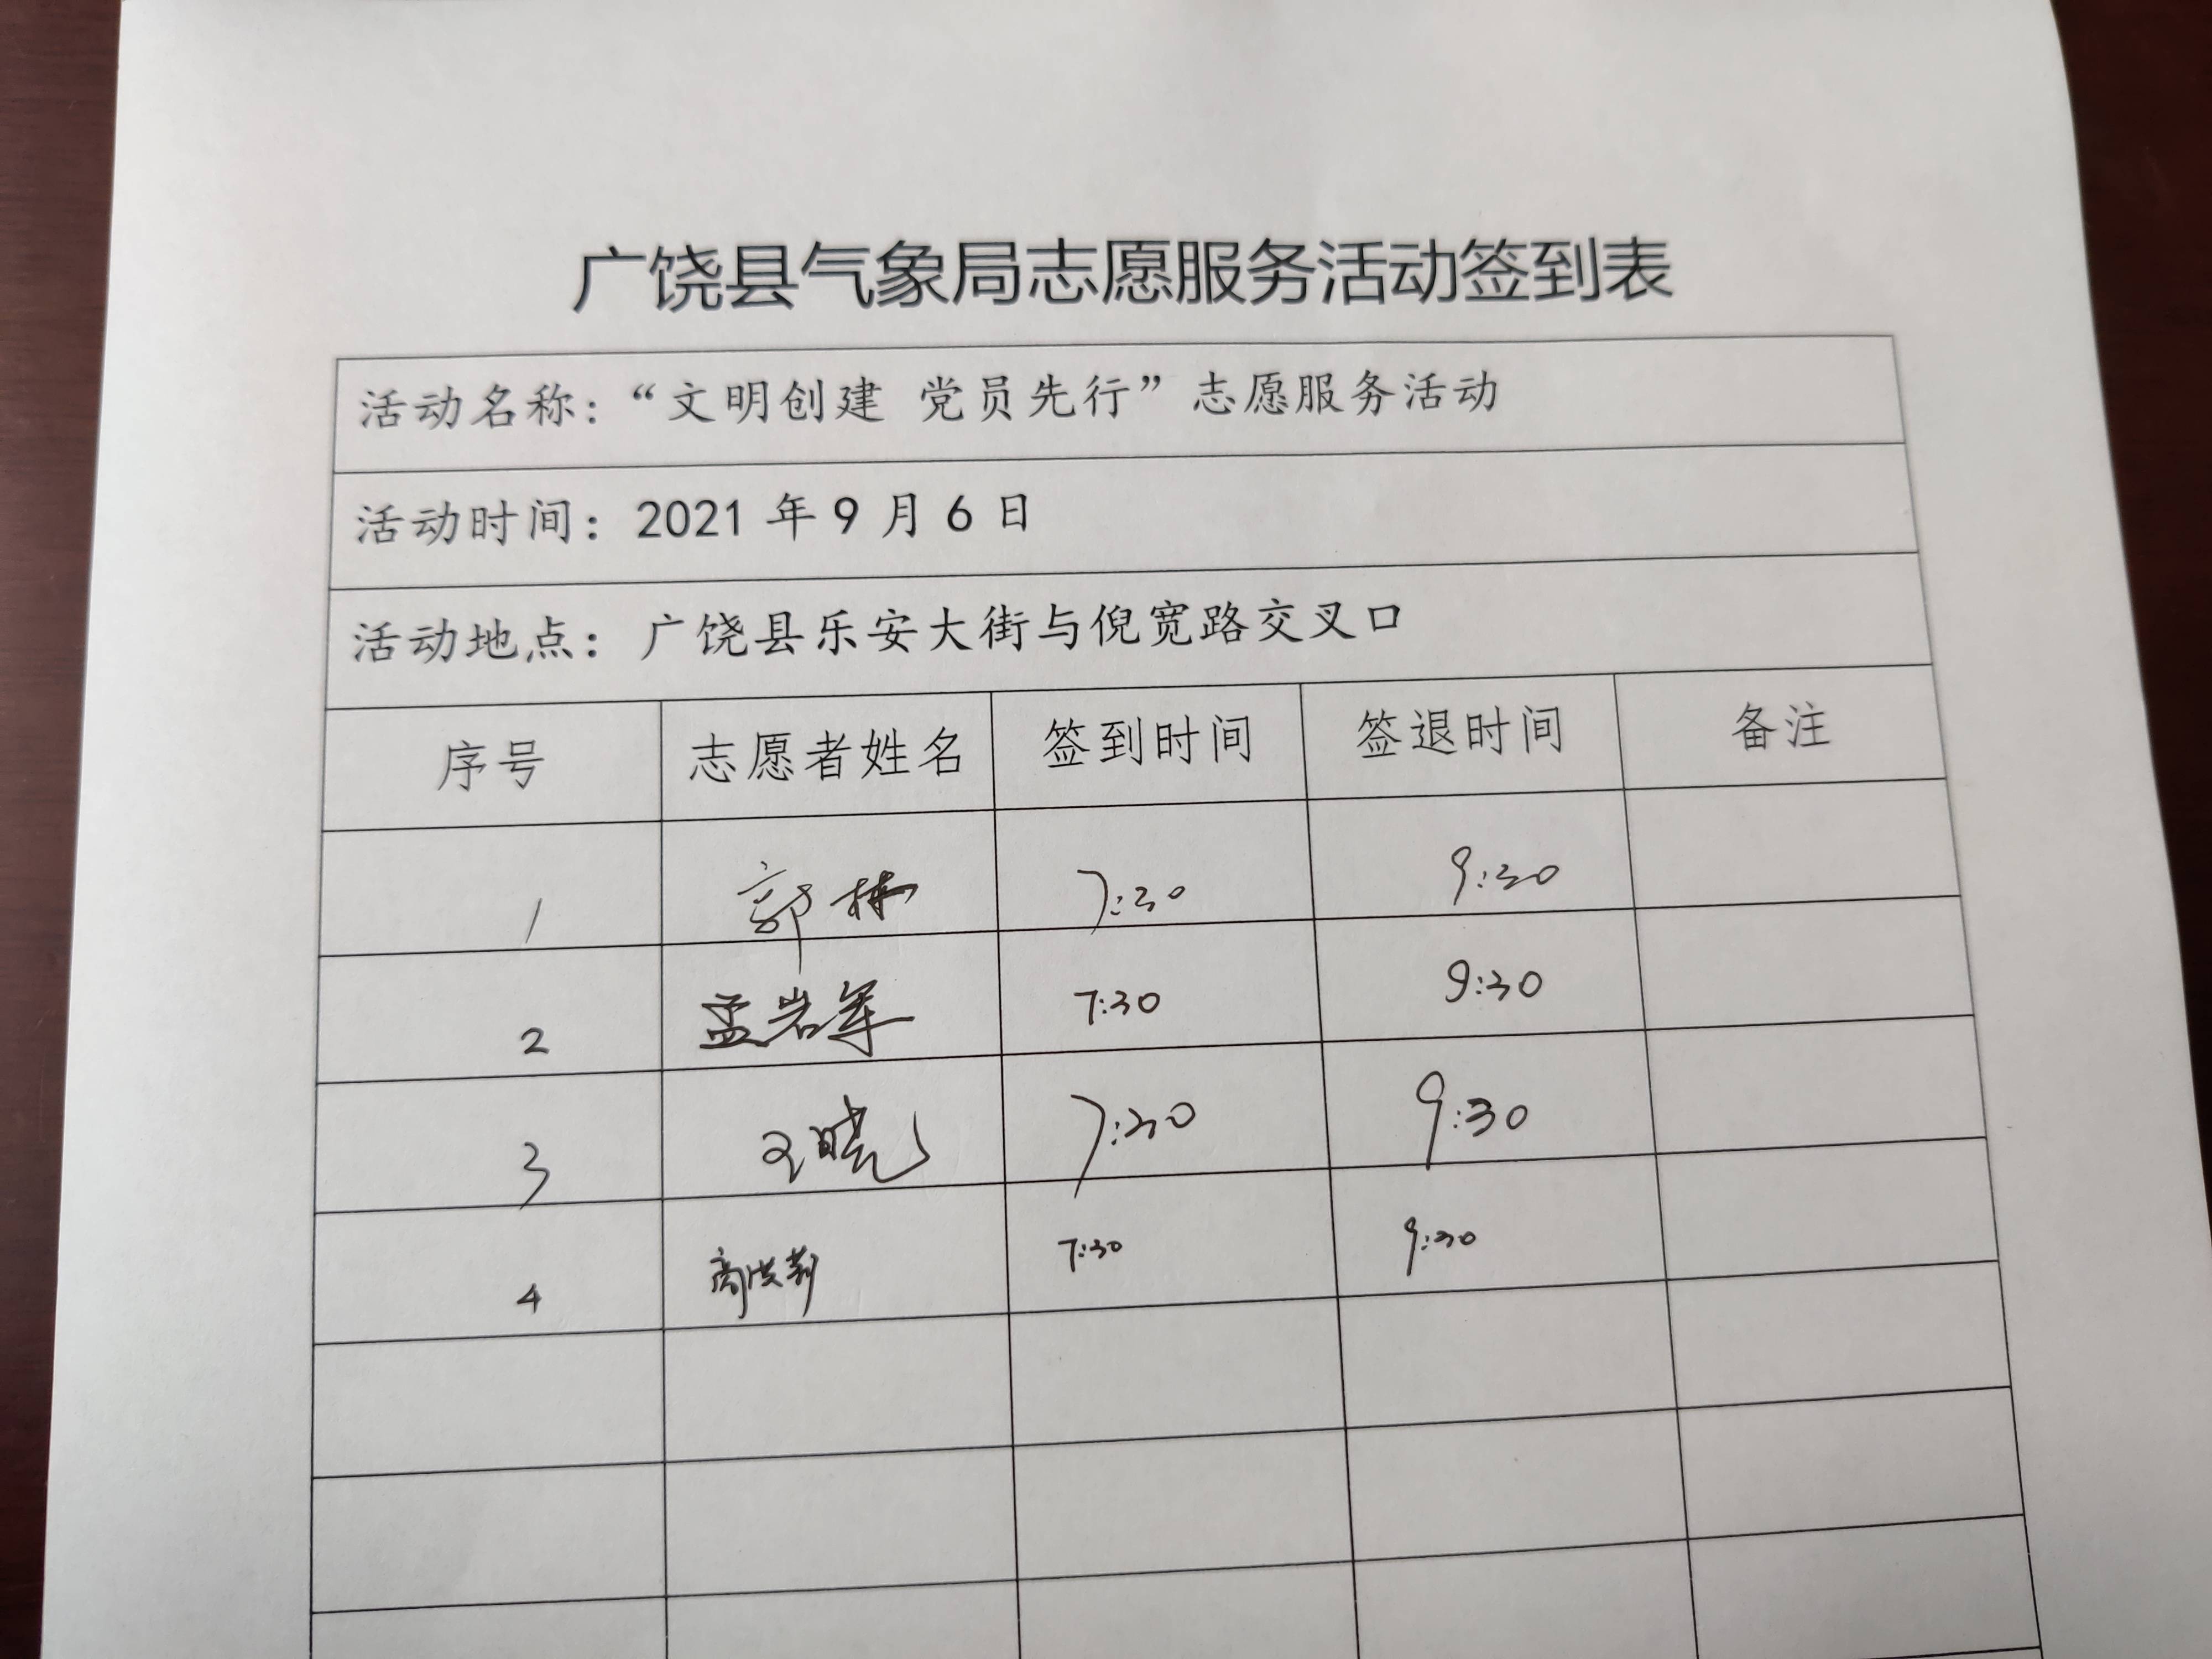 广饶县气象局志愿服务活动签到表
活动名称：“文明创建 党员先行”志愿服务活动
活动时间：2021 年 9 月 6 日
活动地点：广饶县乐安大街与倪宽路交叉口
序号 志愿者姓名 签到时间 签退时间 备注
1 郭林 7:30 9:30
2 孟岩军 7:30 9:30
3 王晓 7:30 9:30
4 高洪 7:30 9:30